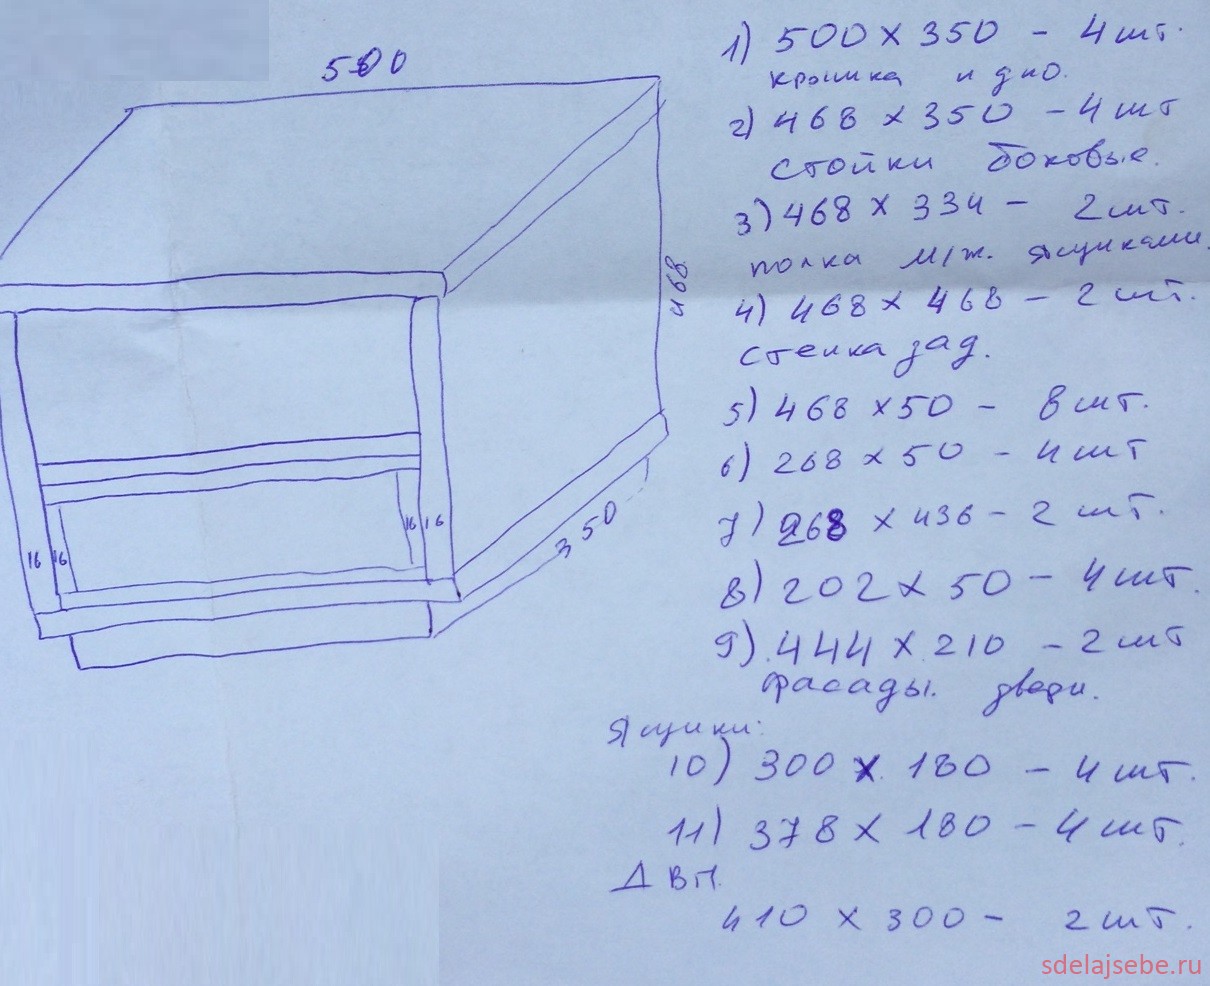 500
468
350
16
16
16
16
1) 500 х 350 - 4 шт.
крышка и дно.
2) 468 х 350 - 4 шт
стойки боковые.
3) 468 х 334 - 2 шт.
полка м/ж. ящиками.
4) 468 х 468 - 2 шт.
стенка зад.
5) 468 х 50 - 8 шт.
6) 268 х 50 - 4 шт
7) 268 х 436 - 2 шт.
8) 202 х 50 - 4 шт.
9) 444 х 210 - 2 шт
фасады. двери.
Ящики:
10) 300 х 180 - 4 шт.
11) 378 х 180 - 4 шт.
ДВП.
410 х 300 - 2 шт.
sdelajsebe.ru